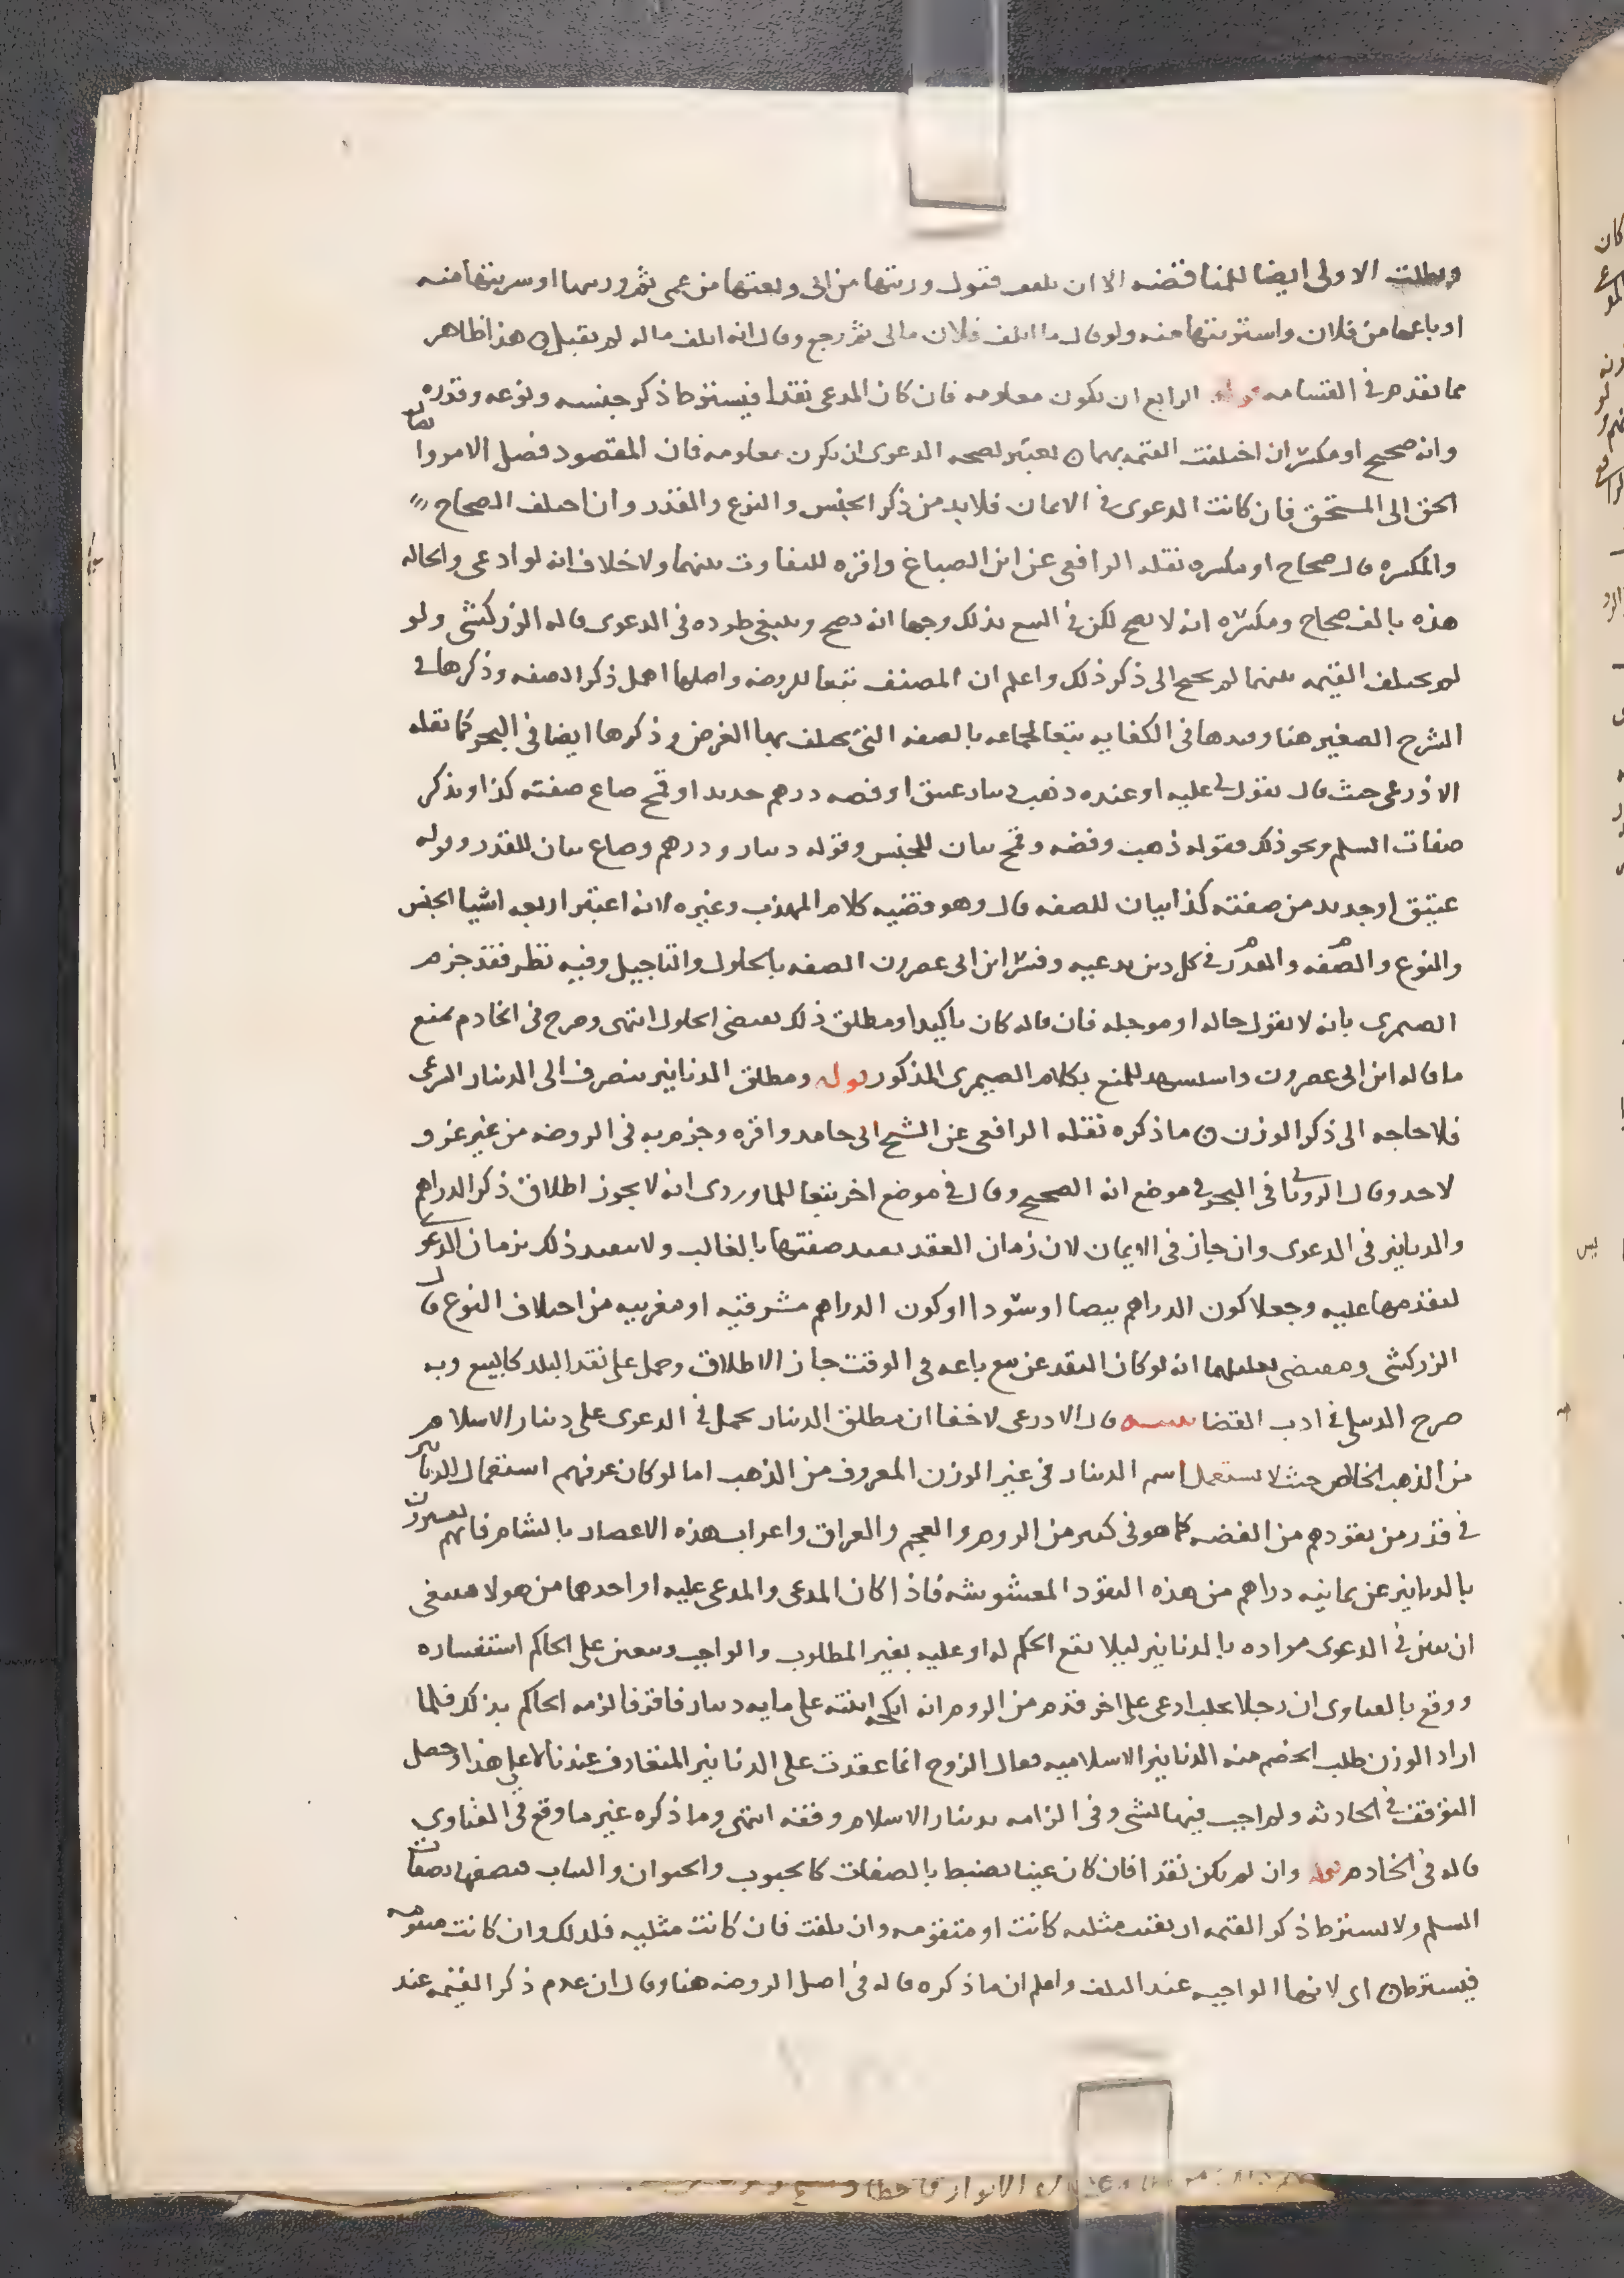 وبطلت الاولى ايضا للمناقضه الا ان تلفق فتقول ورثتها من ابى وبعتها من عمى ثم ورثتها او شريتها منه
او باعها من فلان واشتريتها منه ولو قال ما اتلف فلان مالى ثم رجع وقال انه اتلف ماله لم يقبل ن هذا ظاهر
مما تقدم فى القسامه قوله الرابع ان تكون معلومه فان كان المدعى نقدا فيشترط ذكر جنسه ونوعه وقدره
وانه صحيح او مكسر ان اختلفت القيمه بهما ن يعتبر لصحه الدعوى ان تكون معلومه فان المقصود فصل الامر وايصال
الحق الى المستحق فان كانت الدعوى فى الاثمان فلابد من ذكر الجنس والنوع والقدر وان اختلف الصحاح
والمكسره قال صحاح او مكسره نقله الرافعى عن ابن الصباغ واقره للتفاوت بينهما ولا خلاف انه لو ادعى والحاله
هذه بالف صحاح ومكسره انه لا يصح لكن فى البيع بذلك وجها انه يصح وينبغى طرده فى الدعوى قاله الزركشى ولو
لم تختلف القيمه بينهما لم يحتج الى ذكر ذلك واعلم ان المصنف تبعا للروضه واصلها اهمل ذكر الصفه وذكرها فى
الشرح الصغير هنا وقيدها فى الكفايه تبعا لجماعه بالصفه التى يختلف بها الغرض وذكرها ايضا فى البحر كما نقله
الاذرعى حيث قال يقول لى عليه او عنده ذهب دينار عتيق او فضه درهم جديد او قمح صاع صفته كذا ويذكر
صفات السلم ونحو ذلك فقوله ذهب وفضه وقمح بيان للجنس وقوله دينار ودرهم وصاع بيان للقدر وقوله
عتيق او جديد من صفته كذا بيان للصفه قال وهو قضيه كلام المهذب وغيره لانه اعتبر اربعه اشيا الجنس
والنوع والصفه والقدر فى كل دين يدعيه وفسر ابن ابى عصرون الصفه بالحلول والتاجيل وفيه نظر فقد جزم
الصيمرى بانه لا يقول حاله او موجله فان قاله كان تاكيدا ومطلق ذلك يقتضى الحلول انتهى وصرح فى الخادم بمنع
ما قاله ابن ابى عصرون واستشهد للمنع بكلام الصيمرى المذكور قوله ومطلق الدنانير ينصرف الى الدينار الشرعى
فلا حاجه الى ذكر الوزن ن ما ذكره نقله الرافعى عن الشيخ ابى حامد واقره وجزم به فى الروضه من غير عزو
لاحد وقال الرويانى فى البحر فى موضع انه الصحيح وقال فى موضع اخر تبعا للماوردى انه لا يجوز اطلاق ذكر الدراهم
والدنانير فى الدعوى وان جاز فى الايمان لان زمان العقد يقيد صفتها بالغالب ولا يتقيد ذلك بزمان الدعوى
لتقدمها عليه وجعلا كون الدراهم بيضا او سودا او كون الدراهم مشرقيه او مغربيه من اختلاف النوع قال
الزركشى ومقتضى تعليلهما انه لو كان النقد عن بيع باعه فى الوقت جاز الاطلاق وحمل على نقد البلد كالبيع وبه
صرح الدبيلى فى ادب القضا تنبيه قال الاذرعى لا خفا ان مطلق الدينار يحمل فى الدعوى على دينار الاسلام
من الذهب الخالص حيث لا يستعمل اسم الدينار فى غير الوزن المعروف من الذهب اما لو كان عرفهم استعمال الدنانير
فى قدر من نقودهم من الفضه كما هو فى كثير من الروم والعجم والعراق واعراب هذه الاعصار بالشام فانهم يعبرون
بالدنانير عن ثمانيه دراهم من هذه النقود المغشوشه فاذا كان المدعى والمدعى عليه او احدهما من هولا فينبغى
ان يعين فى الدعوى مراده بالدنانير ليلا يقع الحكم له او عليه بغير المطلوب والواجب ويتعين على الحاكم استفساره
ووقع بالفتاوى ان رجلا بحلب ادعى على اخر قدم من الروم انه انكحه ابنته على مايه دينار فاقر فالزمه الحاكم بذلك فلما
اراد الوزن طلب الخصم منه الدنانير الاسلاميه فقال الزوج انما عقدت على الدنانير المتعارف عندنا لا على هذا وحصل
التوقف فى الحادثه ولم اجب فيها بشى وفى الزامه بدينار الاسلام وقفه انتهى وما ذكره غير ما وقع فى الفتاوى
قاله فى الخادم قوله وان لم يكن نقدا فان كان عينا تضبط بالصفات كالحبوب والحيوان والثياب فيصفها بصفات
السلم ولا يشترط ذكر القيمه ان بقيت مثليه كانت او متقومه وان تلفت فان كانت مثليه فكذلك وان كانت متقومه
فيشترط ن اى لانها الواجبه عند التلف واعلم ان ما ذكره قاله فى اصل الروضه هنا وقال ان عدم ذكر القيمه عند